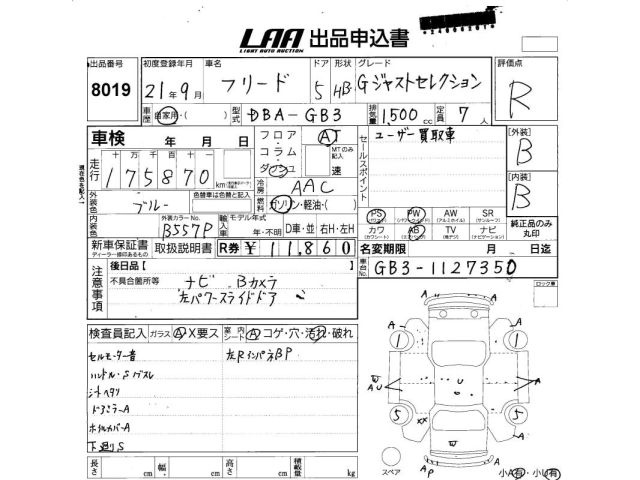 LAA 出品申込書
LIGHT AUTO AUCTION
出品番号 初度登録年月 車名 ドア 形状 グレード 評価点
8019 21年9月 フリード 5 HB Gジャストセレクション R
車歴 自家用・( ) 型式 DBA-GB3 排気量 1,500 cc 定員 7 人
車検 年 月 日 フロア AT ユーザー買取車 [外装]
コラム MTのみ記入 セールスポイント B
走行 十万千百十 速 [内装]
175870 km 冷房 AAC B
外装色 色替車は色替と記入 燃料 ガソリン・軽油・( )
ブルー PS PW AW SR
内装色 外装カラーNo. 輸入車 モデル年式 カワ AB TV ナビ 純正品のみ丸印
B557P 年・不明 D車・並 右H・左H
新車保証書 取扱説明書 R券 ¥ 11,860 名変期限 月 日迄
ディーラー捺印あるもの
注意事項 後日品[ ] 車台No. GB3-1127350
不具合箇所等 ナビ Bカメラ
左パワースライドドア
ロック車
検査員記入 ガラス A X要ス 室内シート A コゲ・穴・汚れ・破れ
セルモーター音 左RインパネBP
シートヘタリ
ドアミラーA
ホイルカバーA
下廻りS
1 1
5 5
A A
U
XX
スペア
AP
A
長さ cm 幅 cm 高さ cm 積載量 kg
小A有・小U有